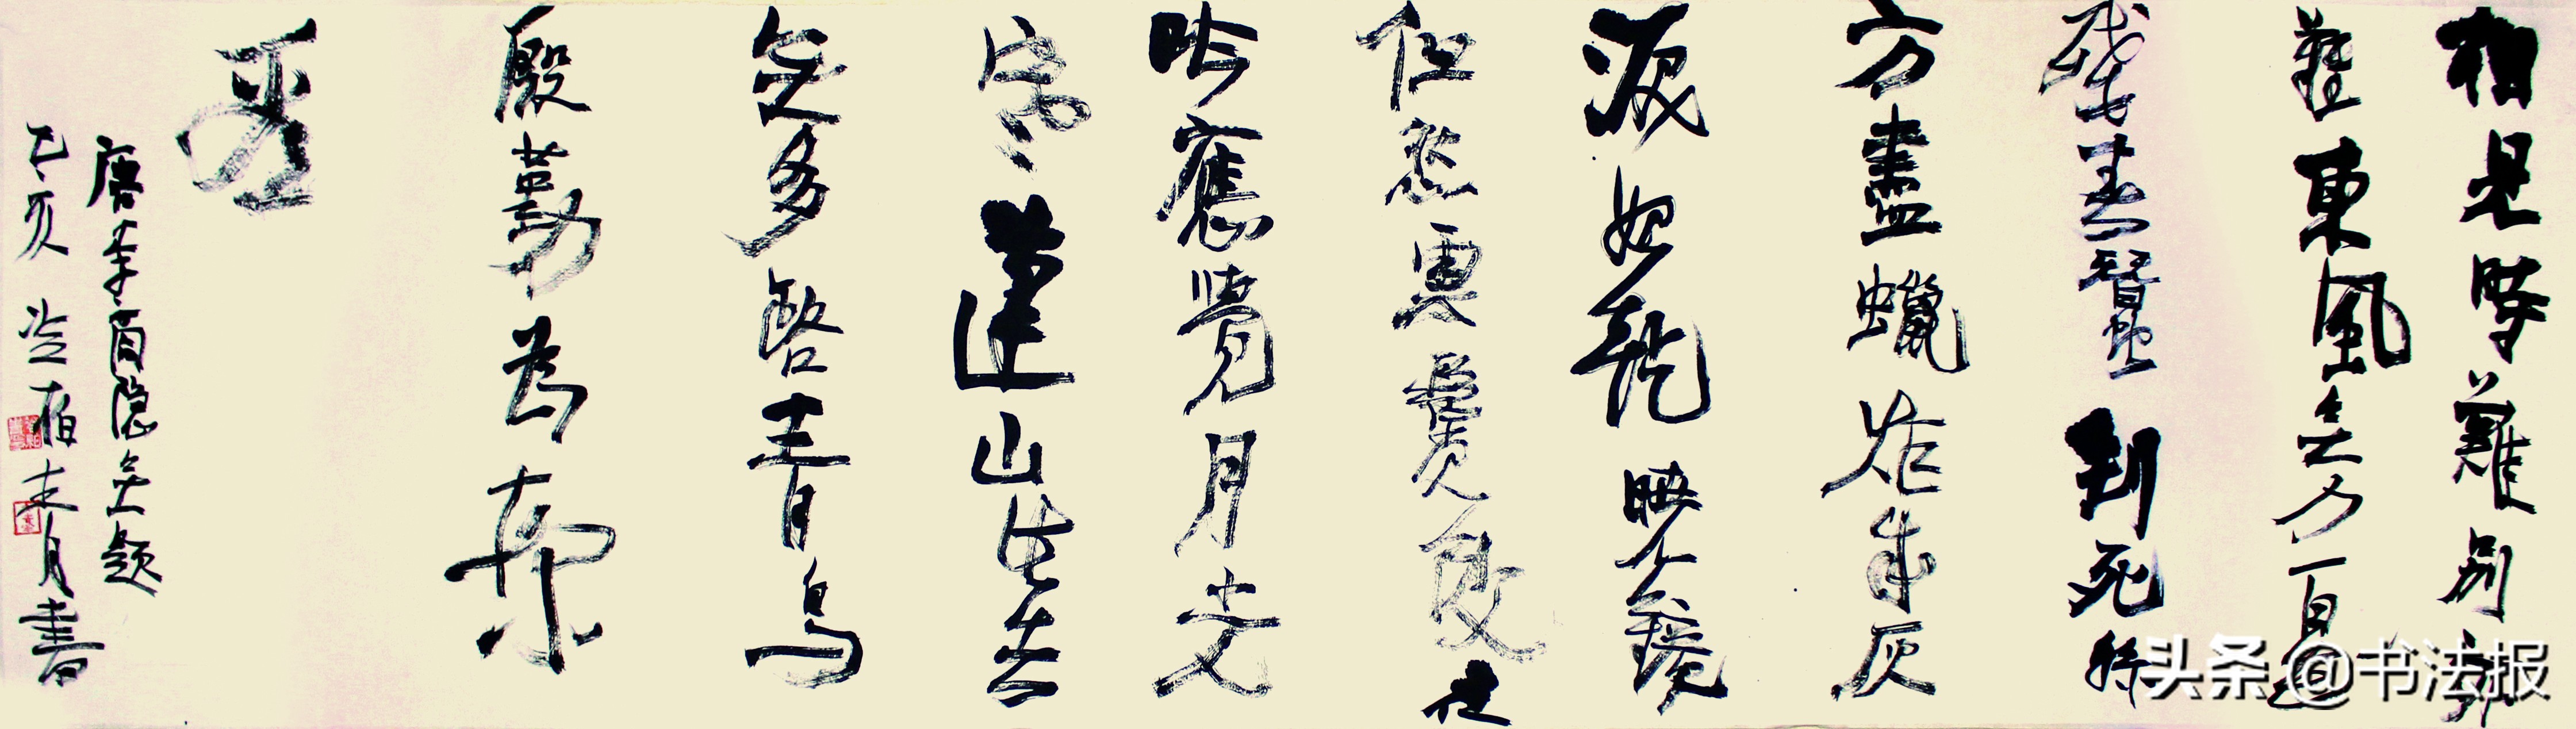 相見時難別亦
難東風無力百花
殘春蠶到死絲
方盡蠟炬成灰
淚始乾曉鏡
但愁雲鬢改夜
吟應覺月光
寒蓬山此去
無多路青鳥
殷勤為探
看
唐李商隐無题
己亥冷柏青書
头条 @书法报